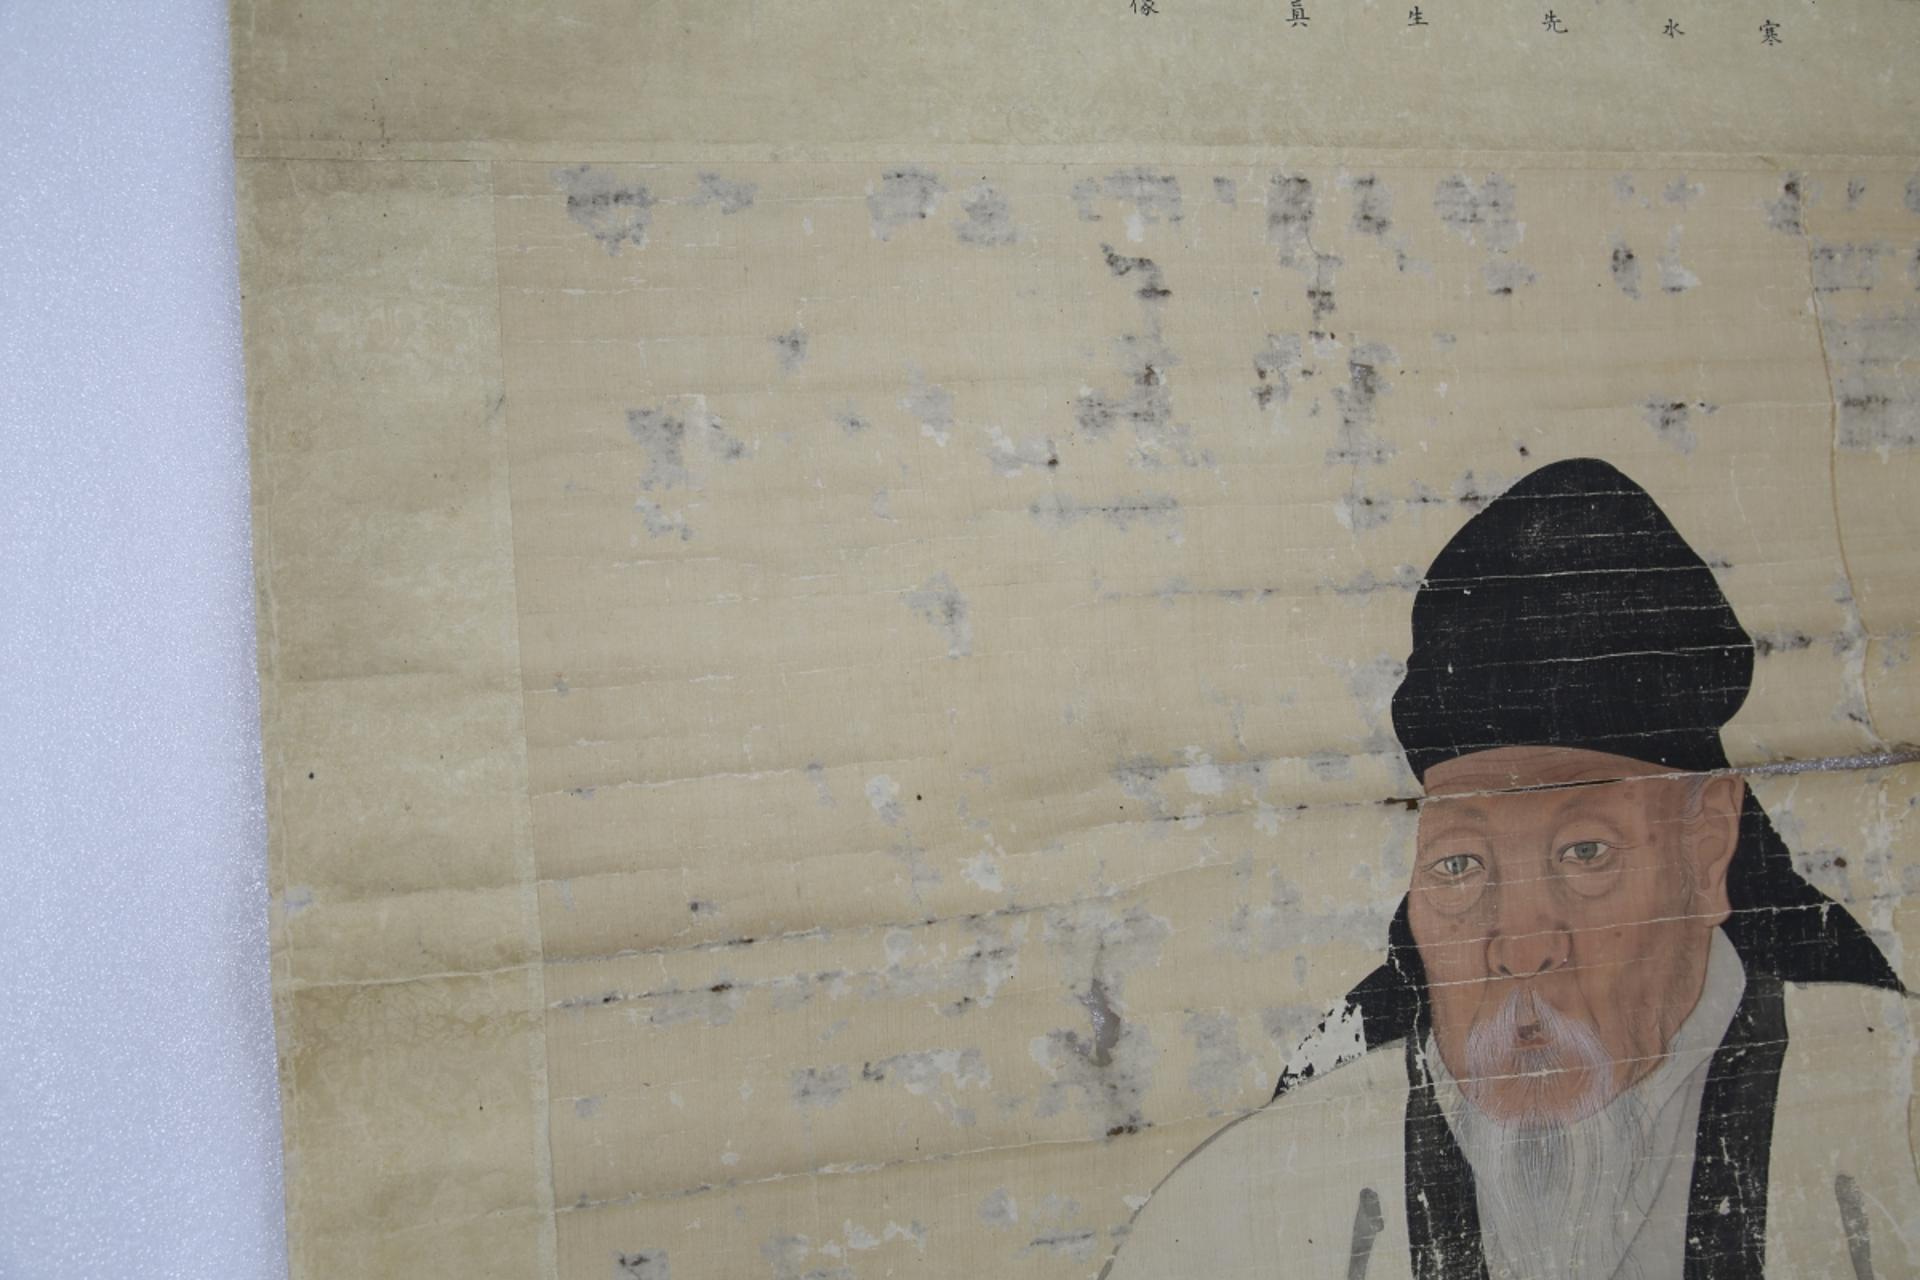 寒水先生眞像